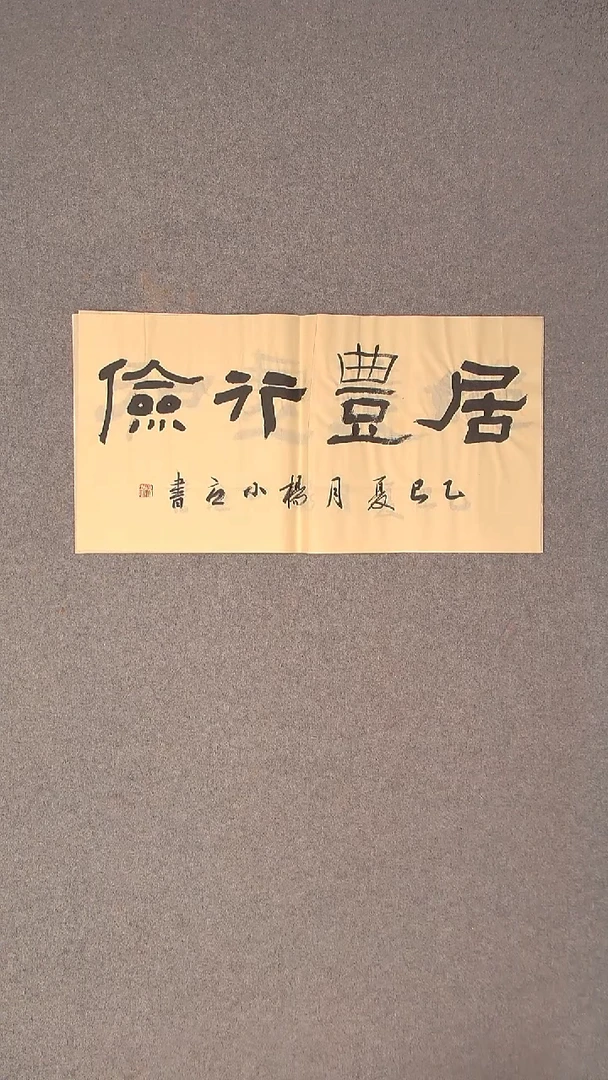 居豊行儉
乙巳夏月楊小立書